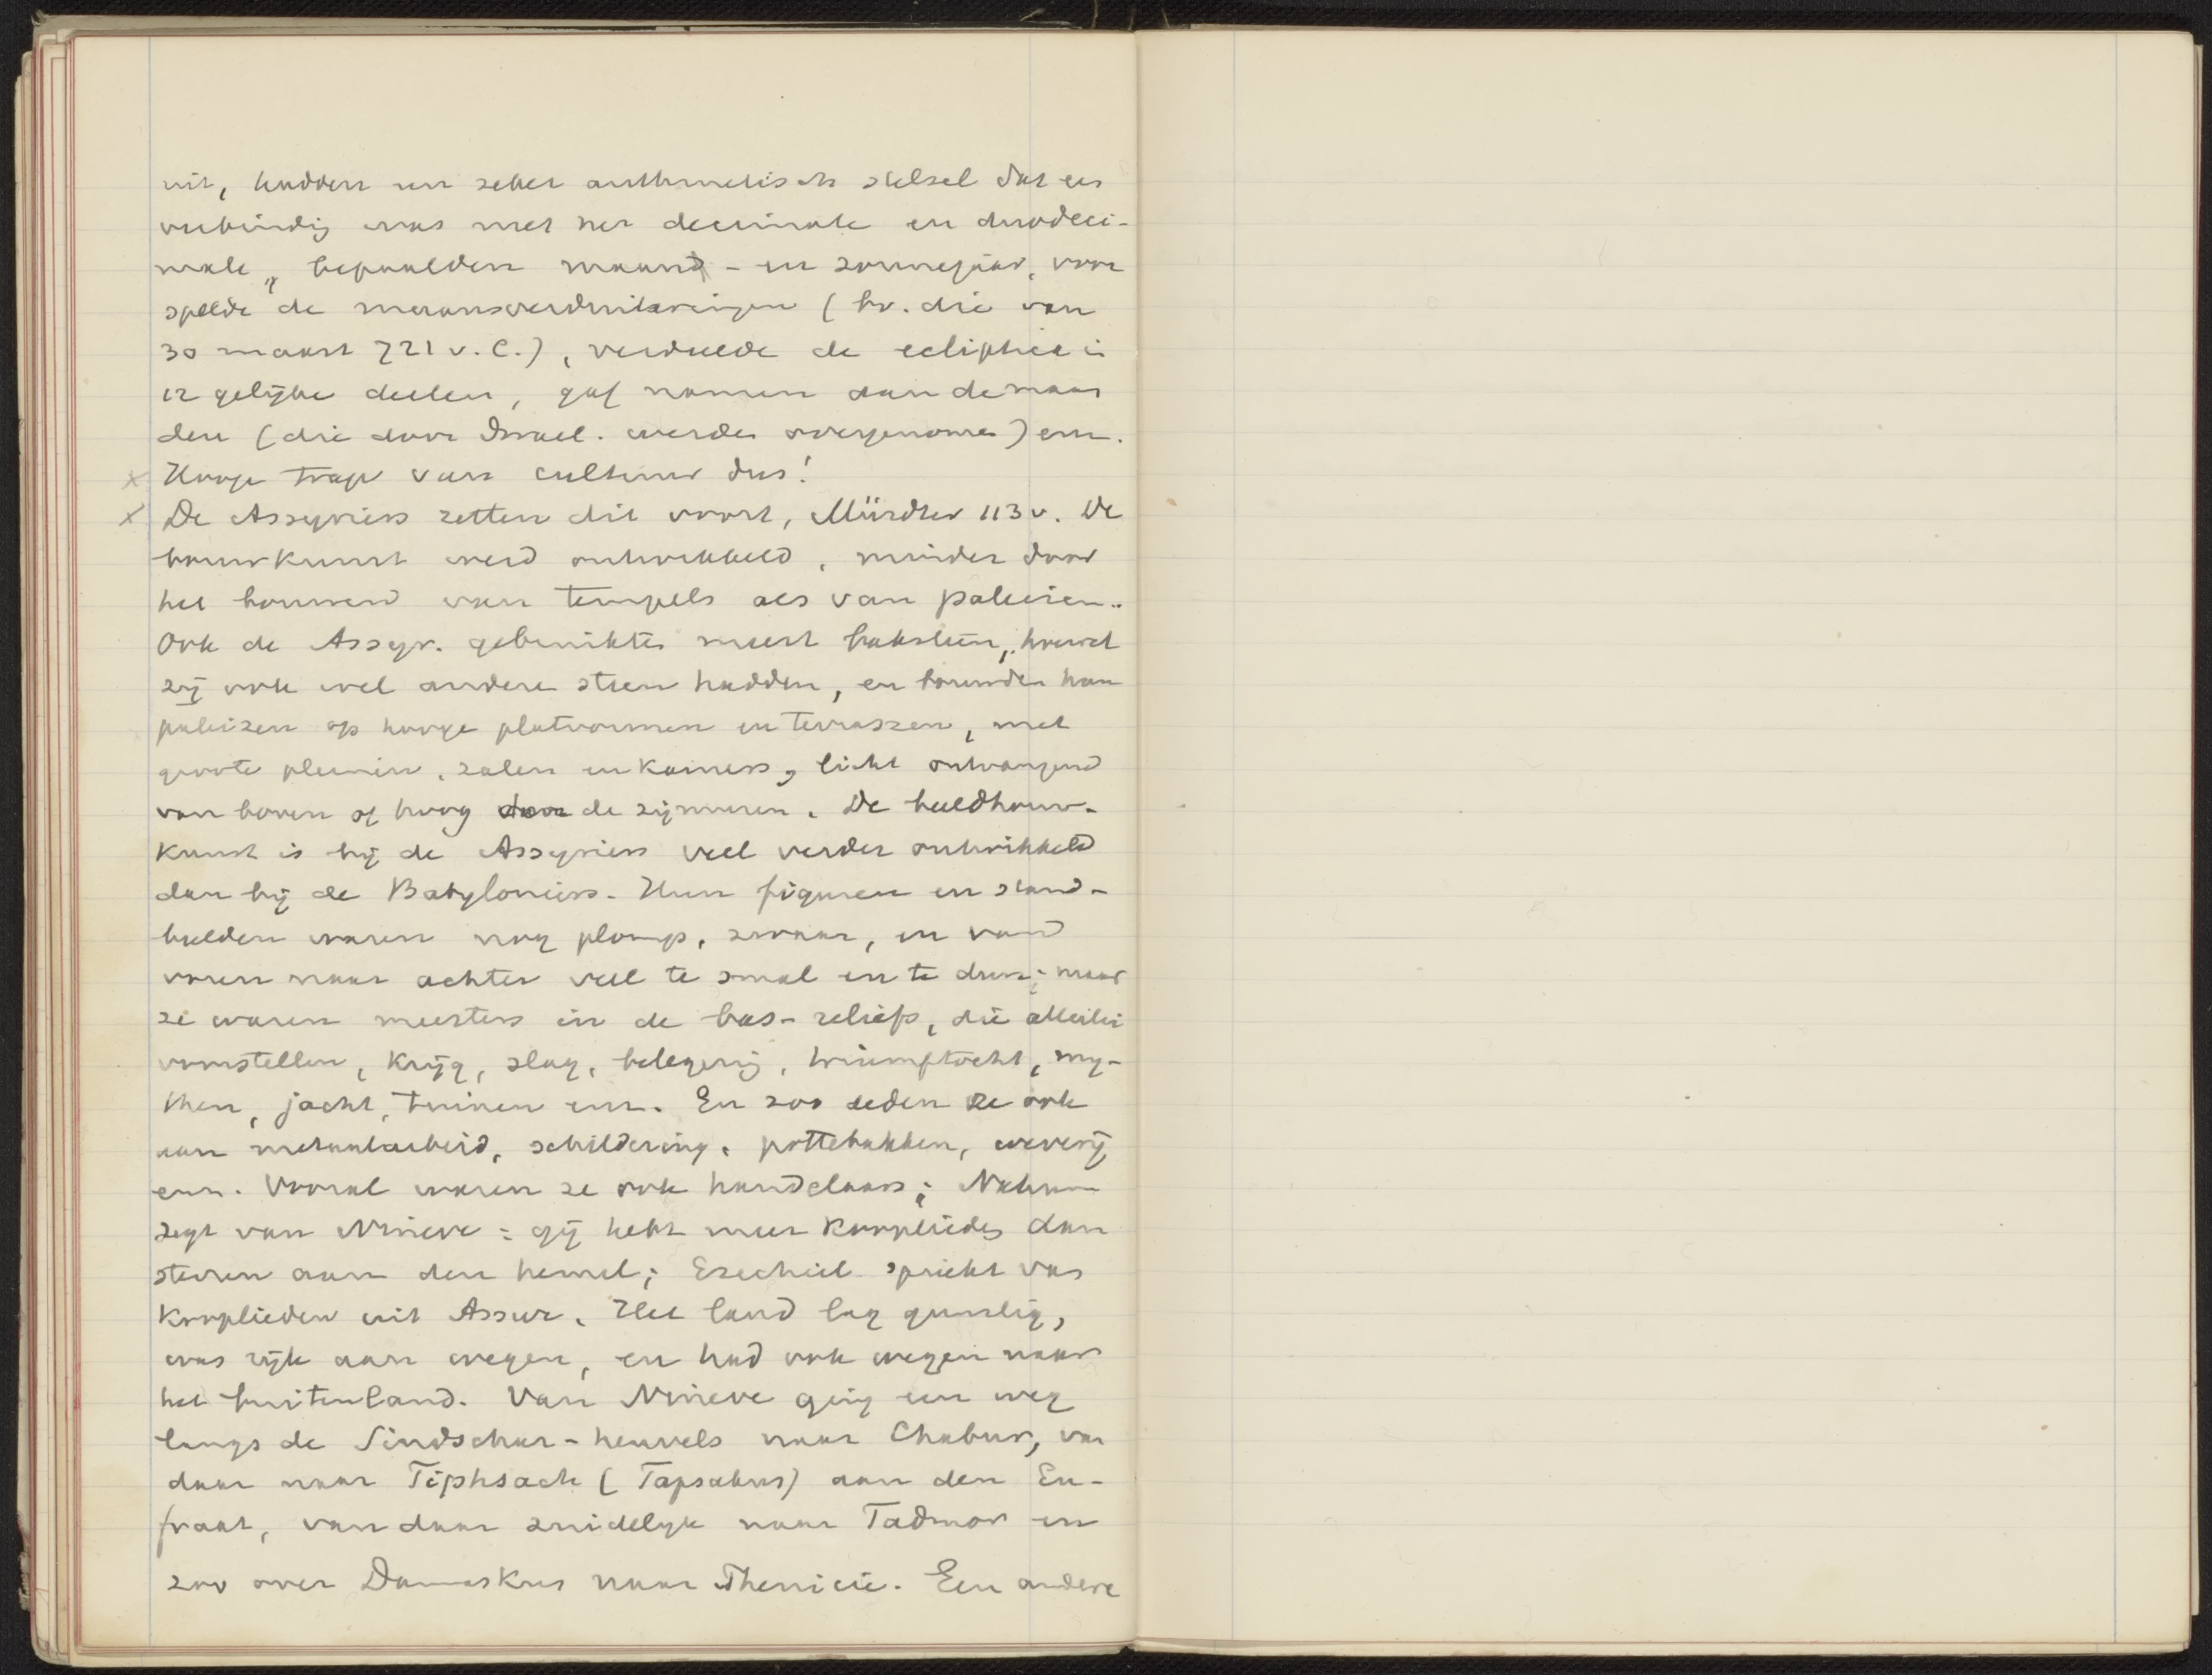 uit, hadden een zeker arithmetisch stelsel dat een
verbindig was met het decimale en duodeci-
male, bepaalden maand - en zonnejaar, voor
spelde de maansverduisteringen (bv. die van
30 maart 721 v. C.), verdeelde de ecliptica in
12 gelijke deelen, gaf namen aan de maan
den (die door Israel. werden overgenomen) enz.
x Hooge trap van cultuur dus!
x De Assyriers zetten dit voort, Mürdter 113 v. De
bouwkunst werd ontwikkeld, minder door
het bouwen van tempels als van paleizen..
Ook de Assyr. gebruikten meest baksteen, hoewel
zij ook wel andere steen hadden, en bouwden hun
paleizen op hooge platvormen en terrassen, met
groote pleinen, zalen en kamers, licht ontvangend
van boven of hoog door de zijmuren. De beeldhouw-
kunst is bij de Assyriers veel verder ontwikkeld
dan bij de Babyloniers. Hun figuren en stand-
beelden waren nog plomp, zwaar, en van
voren naar achter veel te smal en te dun; maar
ze waren meesters in de bas-reliefs, die allerlei
voorstellen, krijg, slag, belegerig, triumftocht, my-
then, jacht, tuinen enz. En zoo deden ze ook
aan metaalarbeid, schildering, pottebakken, weverij
enz. Vooral waren ze ook handelaars; Nahum
zegt van Nineve: gij hebt meer kooplieden dan
sterren aan den hemel; Ezechiel spreekt van
kooplieden uit Assur. Het land lag gunstig,
was rijk aan wegen, en had ook wegen naar
het buitenland. Van Nineve ging een weg
langs de Sindschar-heuvels naar Chabur, van
daar naar Tiphsach (Tapsakus) aan den Eu-
fraat, van daar zuidelijk naar Tadmor en
zoo over Damaskus naar Phenicië. Een andere